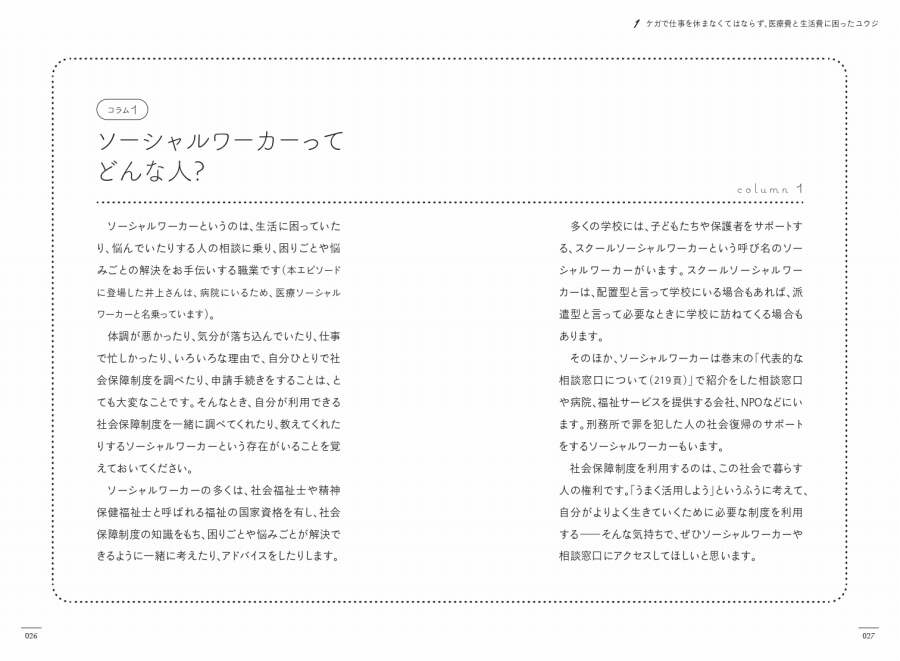 1 ケガで仕事を休まなくてはならず、医療費と生活費に困ったユウジ
コラム1
ソーシャルワーカーって
どんな人?
column 1
ソーシャルワーカーというのは、生活に困っていた
り、悩んでいたりする人の相談に乗り、困りごとや悩
みごとの解決をお手伝いする職業です(本エピソード
に登場した井上さんは、病院にいるため、医療ソーシャル
ワーカーと名乗っています)。
体調が悪かったり、気分が落ち込んでいたり、仕事
で忙しかったり、いろいろな理由で、自分ひとりで社
会保障制度を調べたり、申請手続きをすることは、と
ても大変なことです。そんなとき、自分が利用できる
社会保障制度を一緒に調べてくれたり、教えてくれた
りするソーシャルワーカーという存在がいることを覚
えておいてください。
ソーシャルワーカーの多くは、社会福祉士や精神
保健福祉士と呼ばれる福祉の国家資格を有し、社会
保障制度の知識をもち、困りごとや悩みごとが解決で
きるように一緒に考えたり、アドバイスをしたりします。
多くの学校には、子どもたちや保護者をサポートす
る、スクールソーシャルワーカーという呼び名のソー
シャルワーカーがいます。スクールソーシャルワー
カーは、配置型と言って学校にいる場合もあれば、派
遣型と言って必要なときに学校に訪ねてくる場合も
あります。
そのほか、ソーシャルワーカーは巻末の「代表的な
相談窓口について(219頁)」で紹介をした相談窓口
や病院、福祉サービスを提供する会社、NPOなどにい
ます。刑務所で罪を犯した人の社会復帰のサポート
をするソーシャルワーカーもいます。
社会保障制度を利用するのは、この社会で暮らす
人の権利です。「うまく活用しよう」というふうに考えて、
自分がよりよく生きていくために必要な制度を利用
する——そんな気持ちで、ぜひソーシャルワーカーや
相談窓口にアクセスしてほしいと思います。
026
027